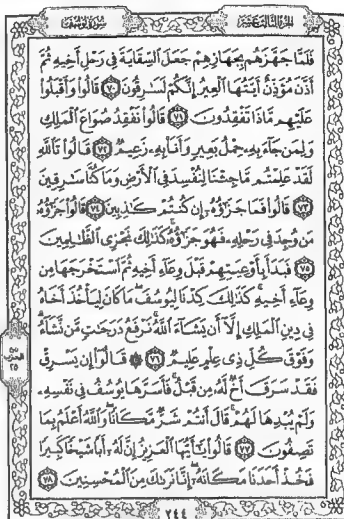 الجزء الثالث عشر
سورة يوسف
فَلَمَّا جَهَّزَهُم بِجَهَازِهِمْ جَعَلَ ٱلسِّقَايَةَ فِي رَحْلِ أَخِيهِ ثُمَّ
أَذَّنَ مُؤَذِّنٌ أَيَّتُهَا ٱلْعِيرُ إِنَّكُمْ لَسَٰرِقُونَ ۝٧٠ قَالُوا۟ وَأَقْبَلُوا۟
عَلَيْهِم مَّاذَا تَفْقِدُونَ ۝٧١ قَالُوا۟ نَفْقِدُ صُوَاعَ ٱلْمَلِكِ
وَلِمَن جَآءَ بِهِۦ حِمْلُ بَعِيرٍ وَأَنَا۠ بِهِۦ زَعِيمٌ ۝٧٢ قَالُوا۟ تَٱللَّهِ
لَقَدْ عَلِمْتُم مَّا جِئْنَا لِنُفْسِدَ فِي ٱلْأَرْضِ وَمَا كُنَّا سَٰرِقِينَ
۝٧٣ قَالُوا۟ فَمَا جَزَٰٓؤُهُۥٓ إِن كُنتُمْ كَٰذِبِينَ ۝٧٤ قَالُوا۟ جَزَٰٓؤُهُۥ
مَن وُجِدَ فِي رَحْلِهِۦ فَهُوَ جَزَٰٓؤُهُۥ كَذَٰلِكَ نَجْزِي ٱلظَّٰلِمِينَ
۝٧٥ فَبَدَأَ بِأَوْعِيَتِهِمْ قَبْلَ وِعَآءِ أَخِيهِ ثُمَّ ٱسْتَخْرَجَهَا مِن
وِعَآءِ أَخِيهِ كَذَٰلِكَ كِدْنَا لِيُوسُفَ مَا كَانَ لِيَأْخُذَ أَخَاهُ
فِي دِينِ ٱلْمَلِكِ إِلَّآ أَن يَشَآءَ ٱللَّهُ نَرْفَعُ دَرَجَٰتٍ مَّن نَّشَآءُ
وَفَوْقَ كُلِّ ذِي عِلْمٍ عَلِيمٌ ۝٧٦ ۞ قَالُوٓا۟ إِن يَسْرِقْ
فَقَدْ سَرَقَ أَخٌ لَّهُۥ مِن قَبْلُ فَأَسَرَّهَا يُوسُفُ فِي نَفْسِهِۦ
وَلَمْ يُبْدِهَا لَهُمْ قَالَ أَنتُمْ شَرٌّ مَّكَانًا وَٱللَّهُ أَعْلَمُ بِمَا
تَصِفُونَ ۝٧٧ قَالُوا۟ يَٰٓأَيُّهَا ٱلْعَزِيزُ إِنَّ لَهُۥٓ أَبًا شَيْخًا كَبِيرًا
فَخُذْ أَحَدَنَا مَكَانَهُۥٓ إِنَّا نَرَىٰكَ مِنَ ٱلْمُحْسِنِينَ ۝٧٨
٢٤٤